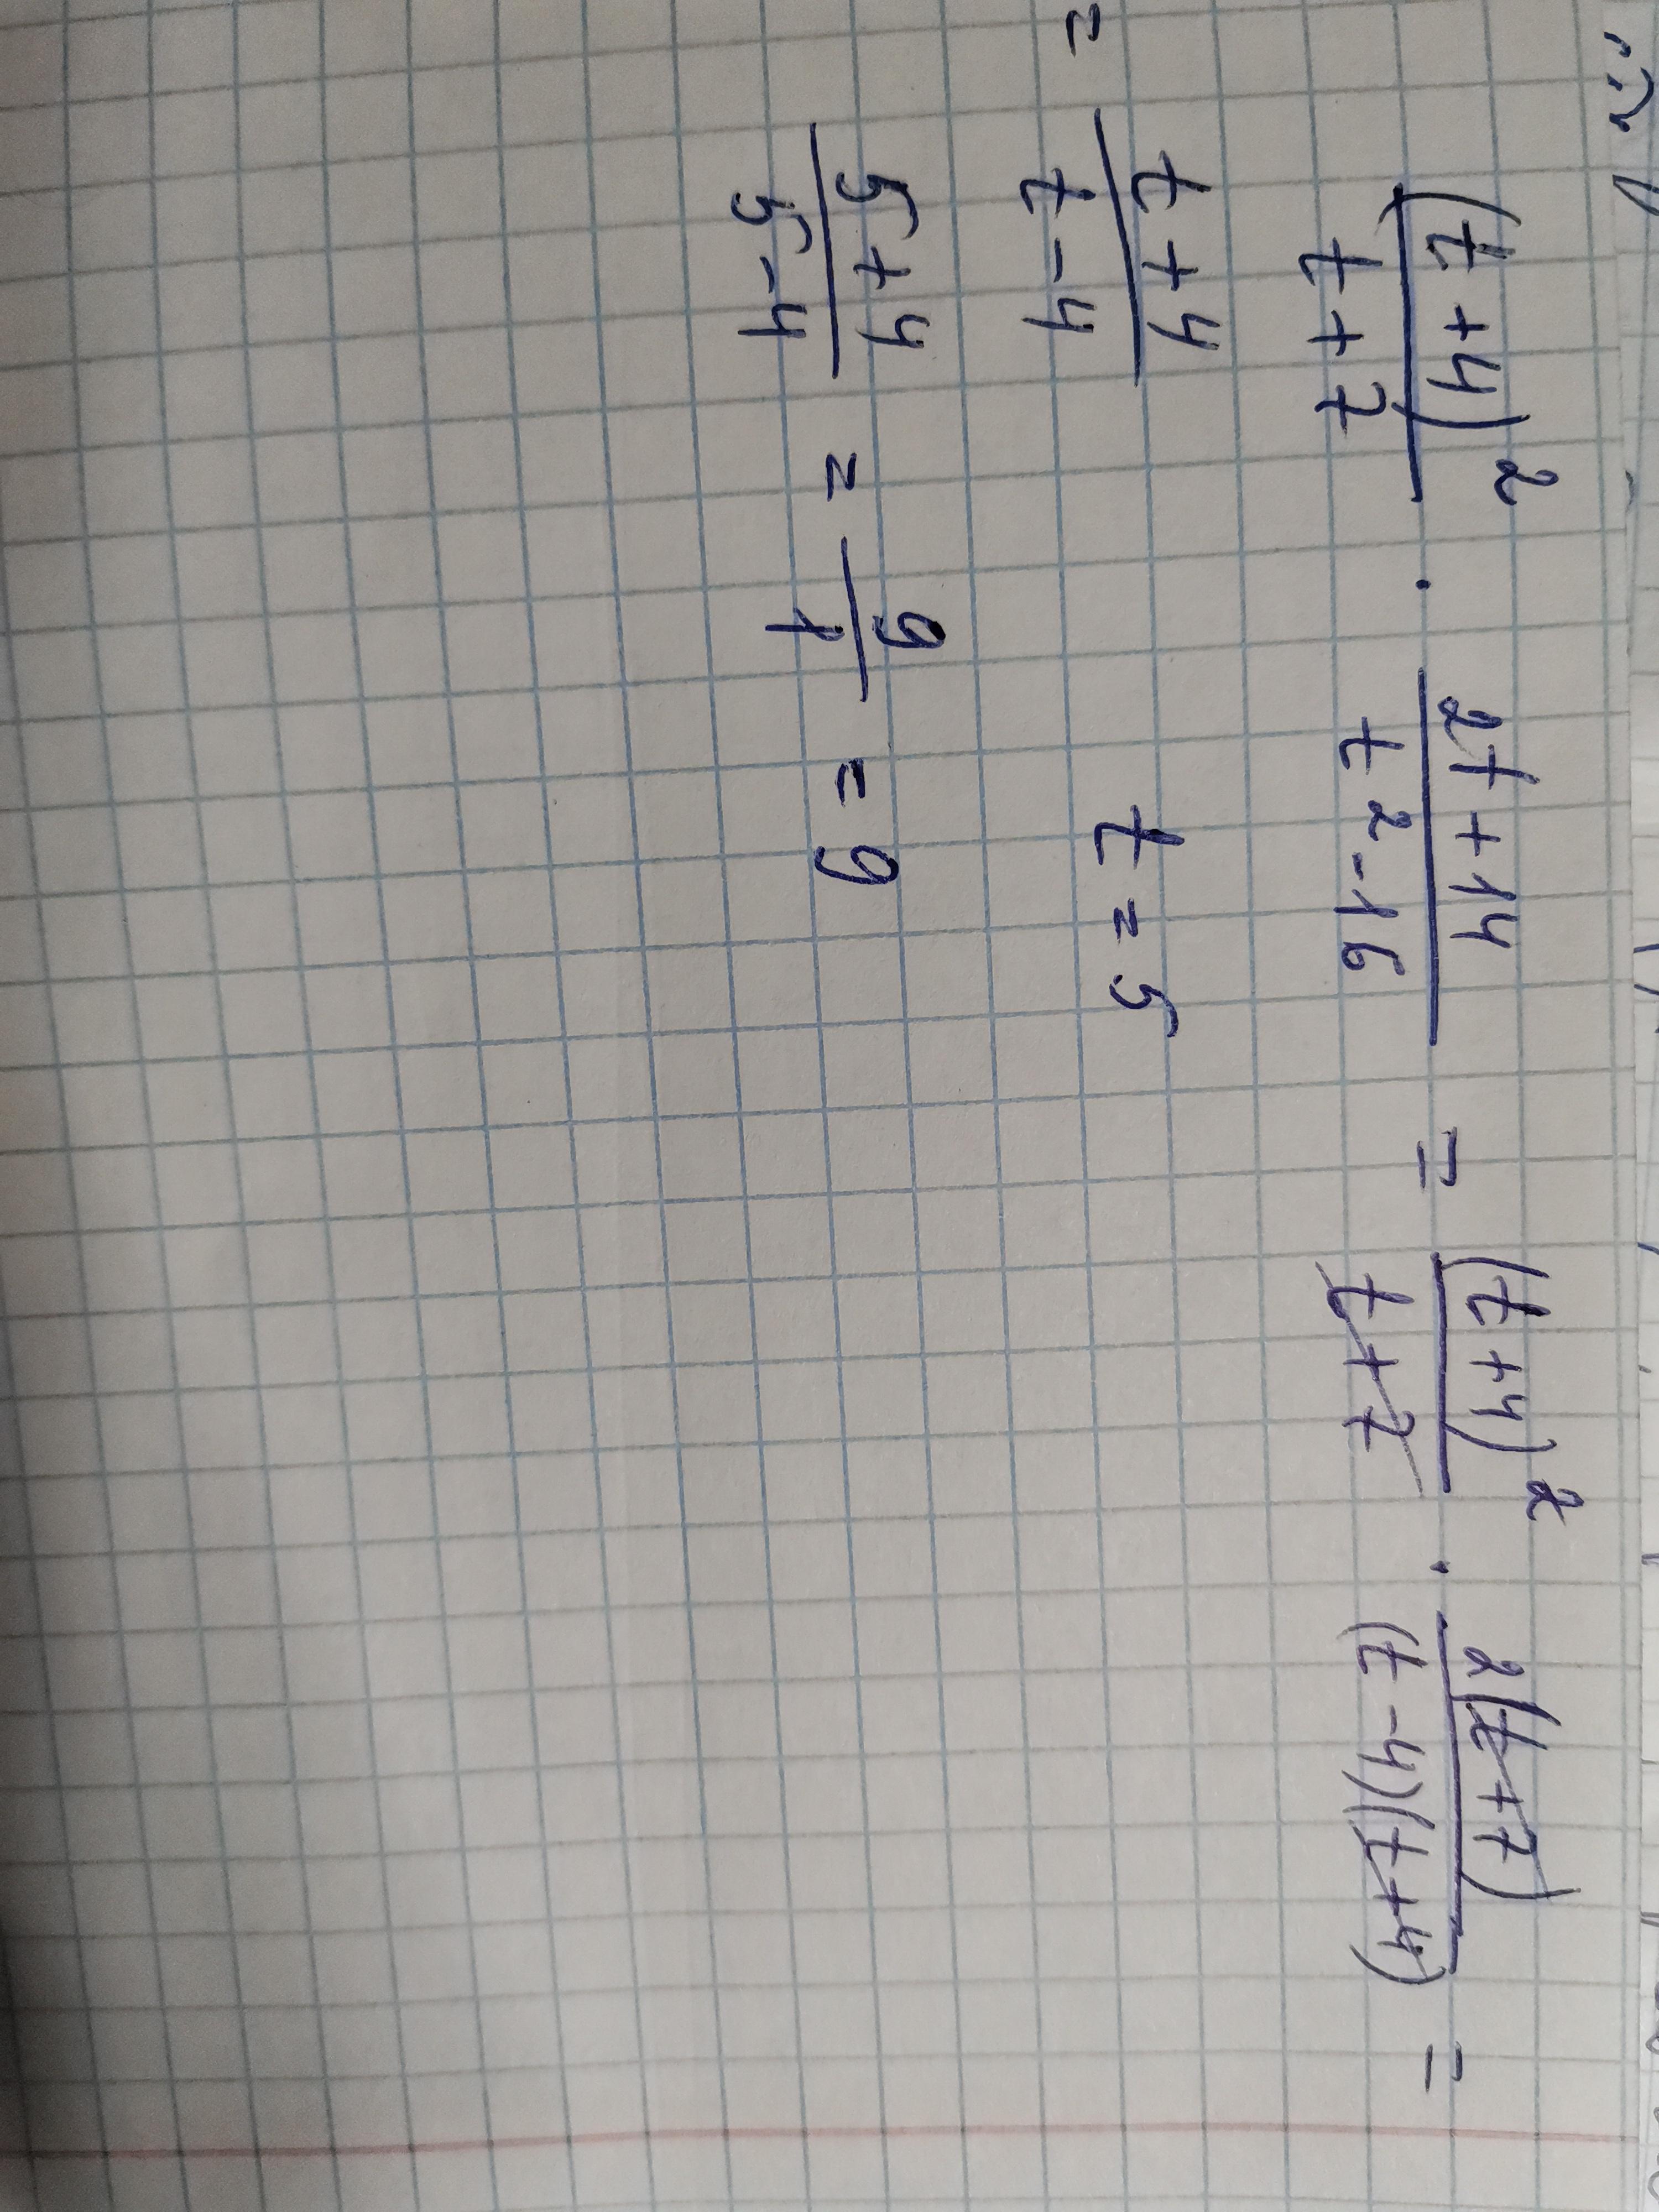 (t+4)² / t+7 · 2t+14 / t²-16 = (t+4)² / t+7 · 2(t+7) / (t-4)(t+4) =
= t+4 / t-4 t=5
5+4 / 5-4 = 9 / 1 = 9